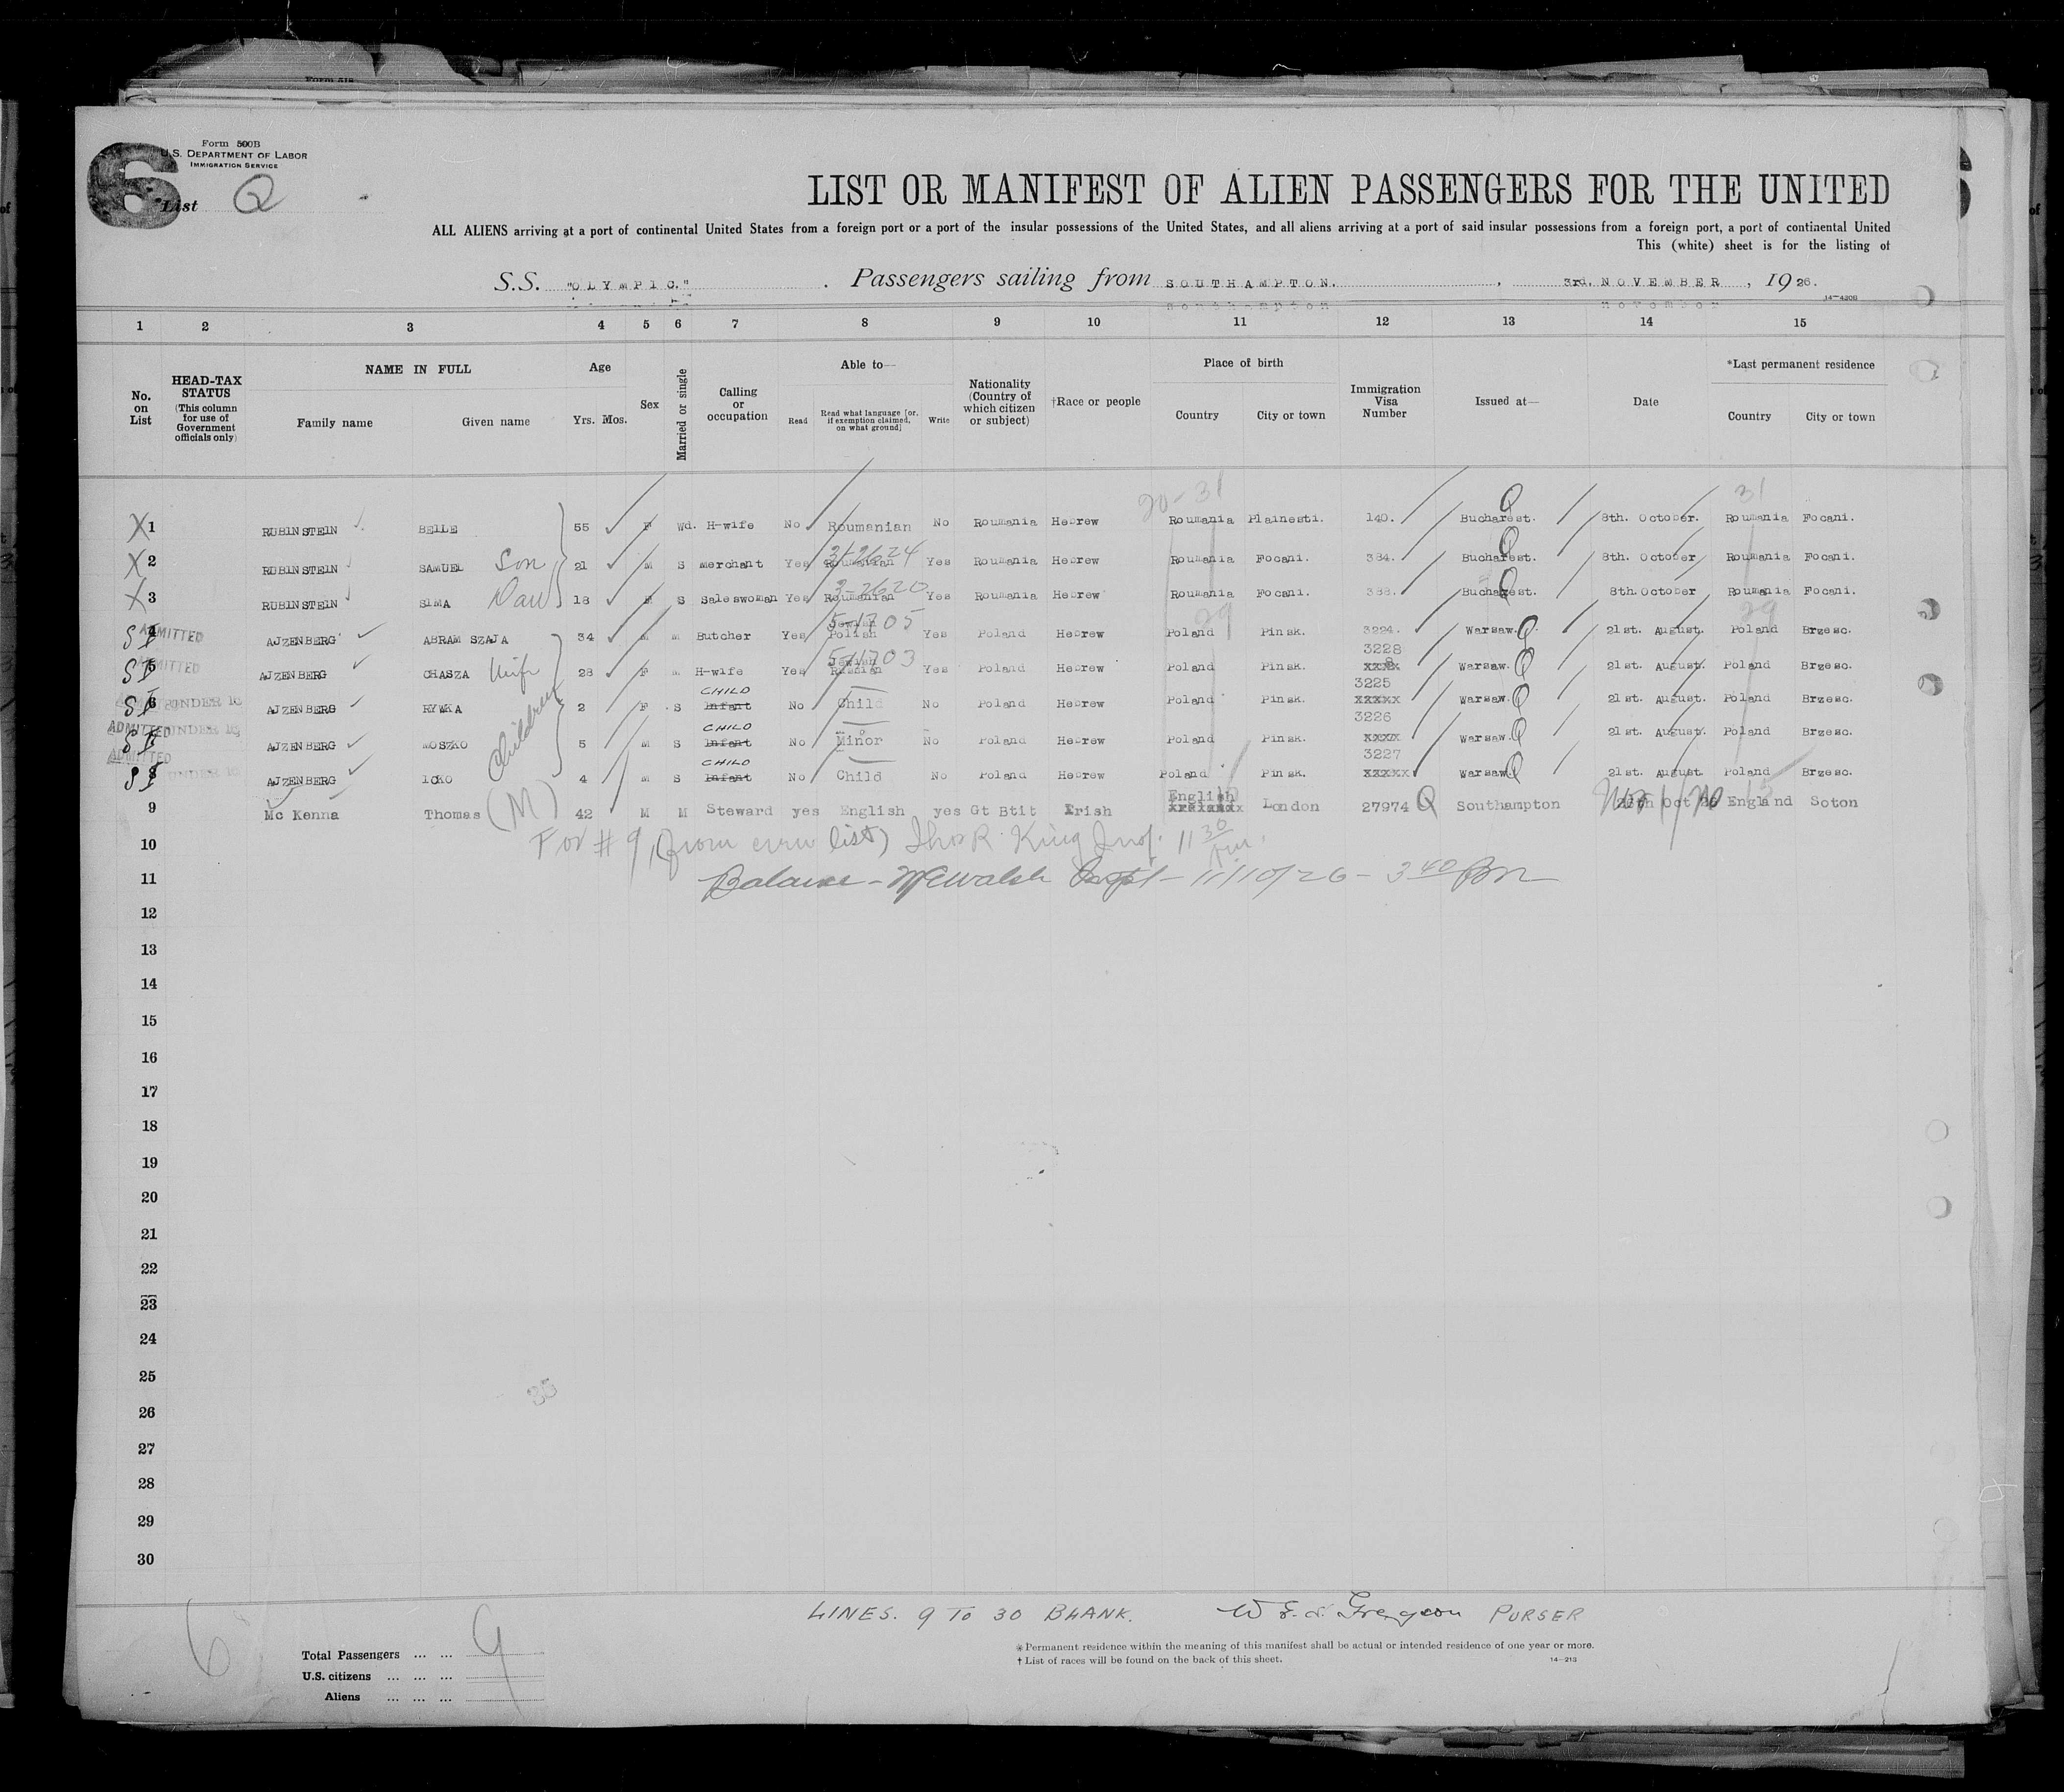 Form 518
6
Form 500B
U.S. DEPARTMENT OF LABOR
IMMIGRATION SERVICE
List Q
LIST OR MANIFEST OF ALIEN PASSENGERS FOR THE UNITED
ALL ALIENS arriving at a port of continental United States from a foreign port or a port of the insular possessions of the United States, and all aliens arriving at a port of said insular possessions from a foreign port, a port of continental United
This (white) sheet is for the listing of
S.S. "OLYMPIC." . Passengers sailing from SOUTHAMPTON. , 3rd. NOVEMBER , 1926.
14-4208
1 2 3 4 5 6 7 8 9 10 11 12 13 14 15
No. on List
HEAD-TAX STATUS (This column for use of Government officials only)
NAME IN FULL
Family name Given name
Age
Yrs. Mos.
Sex
Married or single
Calling or occupation
Able to—
Read Read what language [or, if exemption claimed, on what ground] Write
Nationality (Country of which citizen or subject)
†Race or people
Place of birth
Country City or town
Immigration Visa Number
Issued at—
Date
*Last permanent residence
Country City or town
20-31 31
X 1 RUBINSTEIN BEILE 55 F Wd. H-wife No Roumanian No Roumania Hebrew Roumania Plainesti. 140. Bucharest. Q 8th. October. Roumania Focani.
3-2624
X 2 RUBINSTEIN SAMUEL Son 21 M S merchant Yes Roumanian Yes Roumania Hebrew Roumania Focani. 384. Bucharest. Q 8th. October Roumania Focani.
3-2620
X 3 RUBINSTEIN SIMA Dau 18 F S Saleswoman Yes Roumanian Yes Roumania Hebrew Roumania Focani. 388. Bucharest. Q 8th. October Roumania Focani.
Jewish 5-1705 29 29
SI 4 ADMITTED AJZENBERG ABRAM SZAJA 34 M m Butcher Yes Polish Yes Poland Hebrew Poland Pinsk. 3224. Warsaw. Q 21st. August. Poland Brzesc.
Jewish 5-1703 3228
SI 5 ADMITTED AJZENBERG CHASZA Wife 28 F m H-wife Yes Russian Yes Poland Hebrew Poland Pinsk. xxxx Warsaw. Q 21st. August. Poland Brzesc.
CHILD 3225
SI 6 UNDER 16 AJZENBERG RYWKA Children 2 F S Infant No Child No Poland Hebrew Poland Pinsk. xxxxx Warsaw. Q 21st. August. Poland Brzesc.
CHILD 3226
SI 7 ADMITTED UNDER 16 AJZENBERG MOSZKO 5 M S Infant No Minor No Poland Hebrew Poland Pinsk. xxxx Warsaw. Q 21st. August. Poland Brzesc.
CHILD 3227
SI 8 ADMITTED UNDER 16 AJZENBERG ICKO 4 M S Infant No Child No Poland Hebrew Poland Pinsk. xxxxx Warsaw Q 21st. August. Poland Brzesc.
English
9 Mc Kenna Thomas (M) 42 M M Steward yes English yes Gt Btit Irish London 27974 Q Southampton 26th Oct 26 England Soton
10 For # 9, (from crew list) Thos R. King Insp. 11 30 am.
11 Balance - Walsh Inspt - 11/10/26 - 3 40 Pm
12
13
14
15
16
17
18
19
20
21
22
23
24
25
26
27
28
29
30
LINES. 9 TO 30 BLANK. PURSER
6
Total Passengers ... ... 9
U.S. citizens ... ... ...
Aliens ... ... ...
*Permanent residence within the meaning of this manifest shall be actual or intended residence of one year or more.
† List of races will be found on the back of this sheet.
14-213